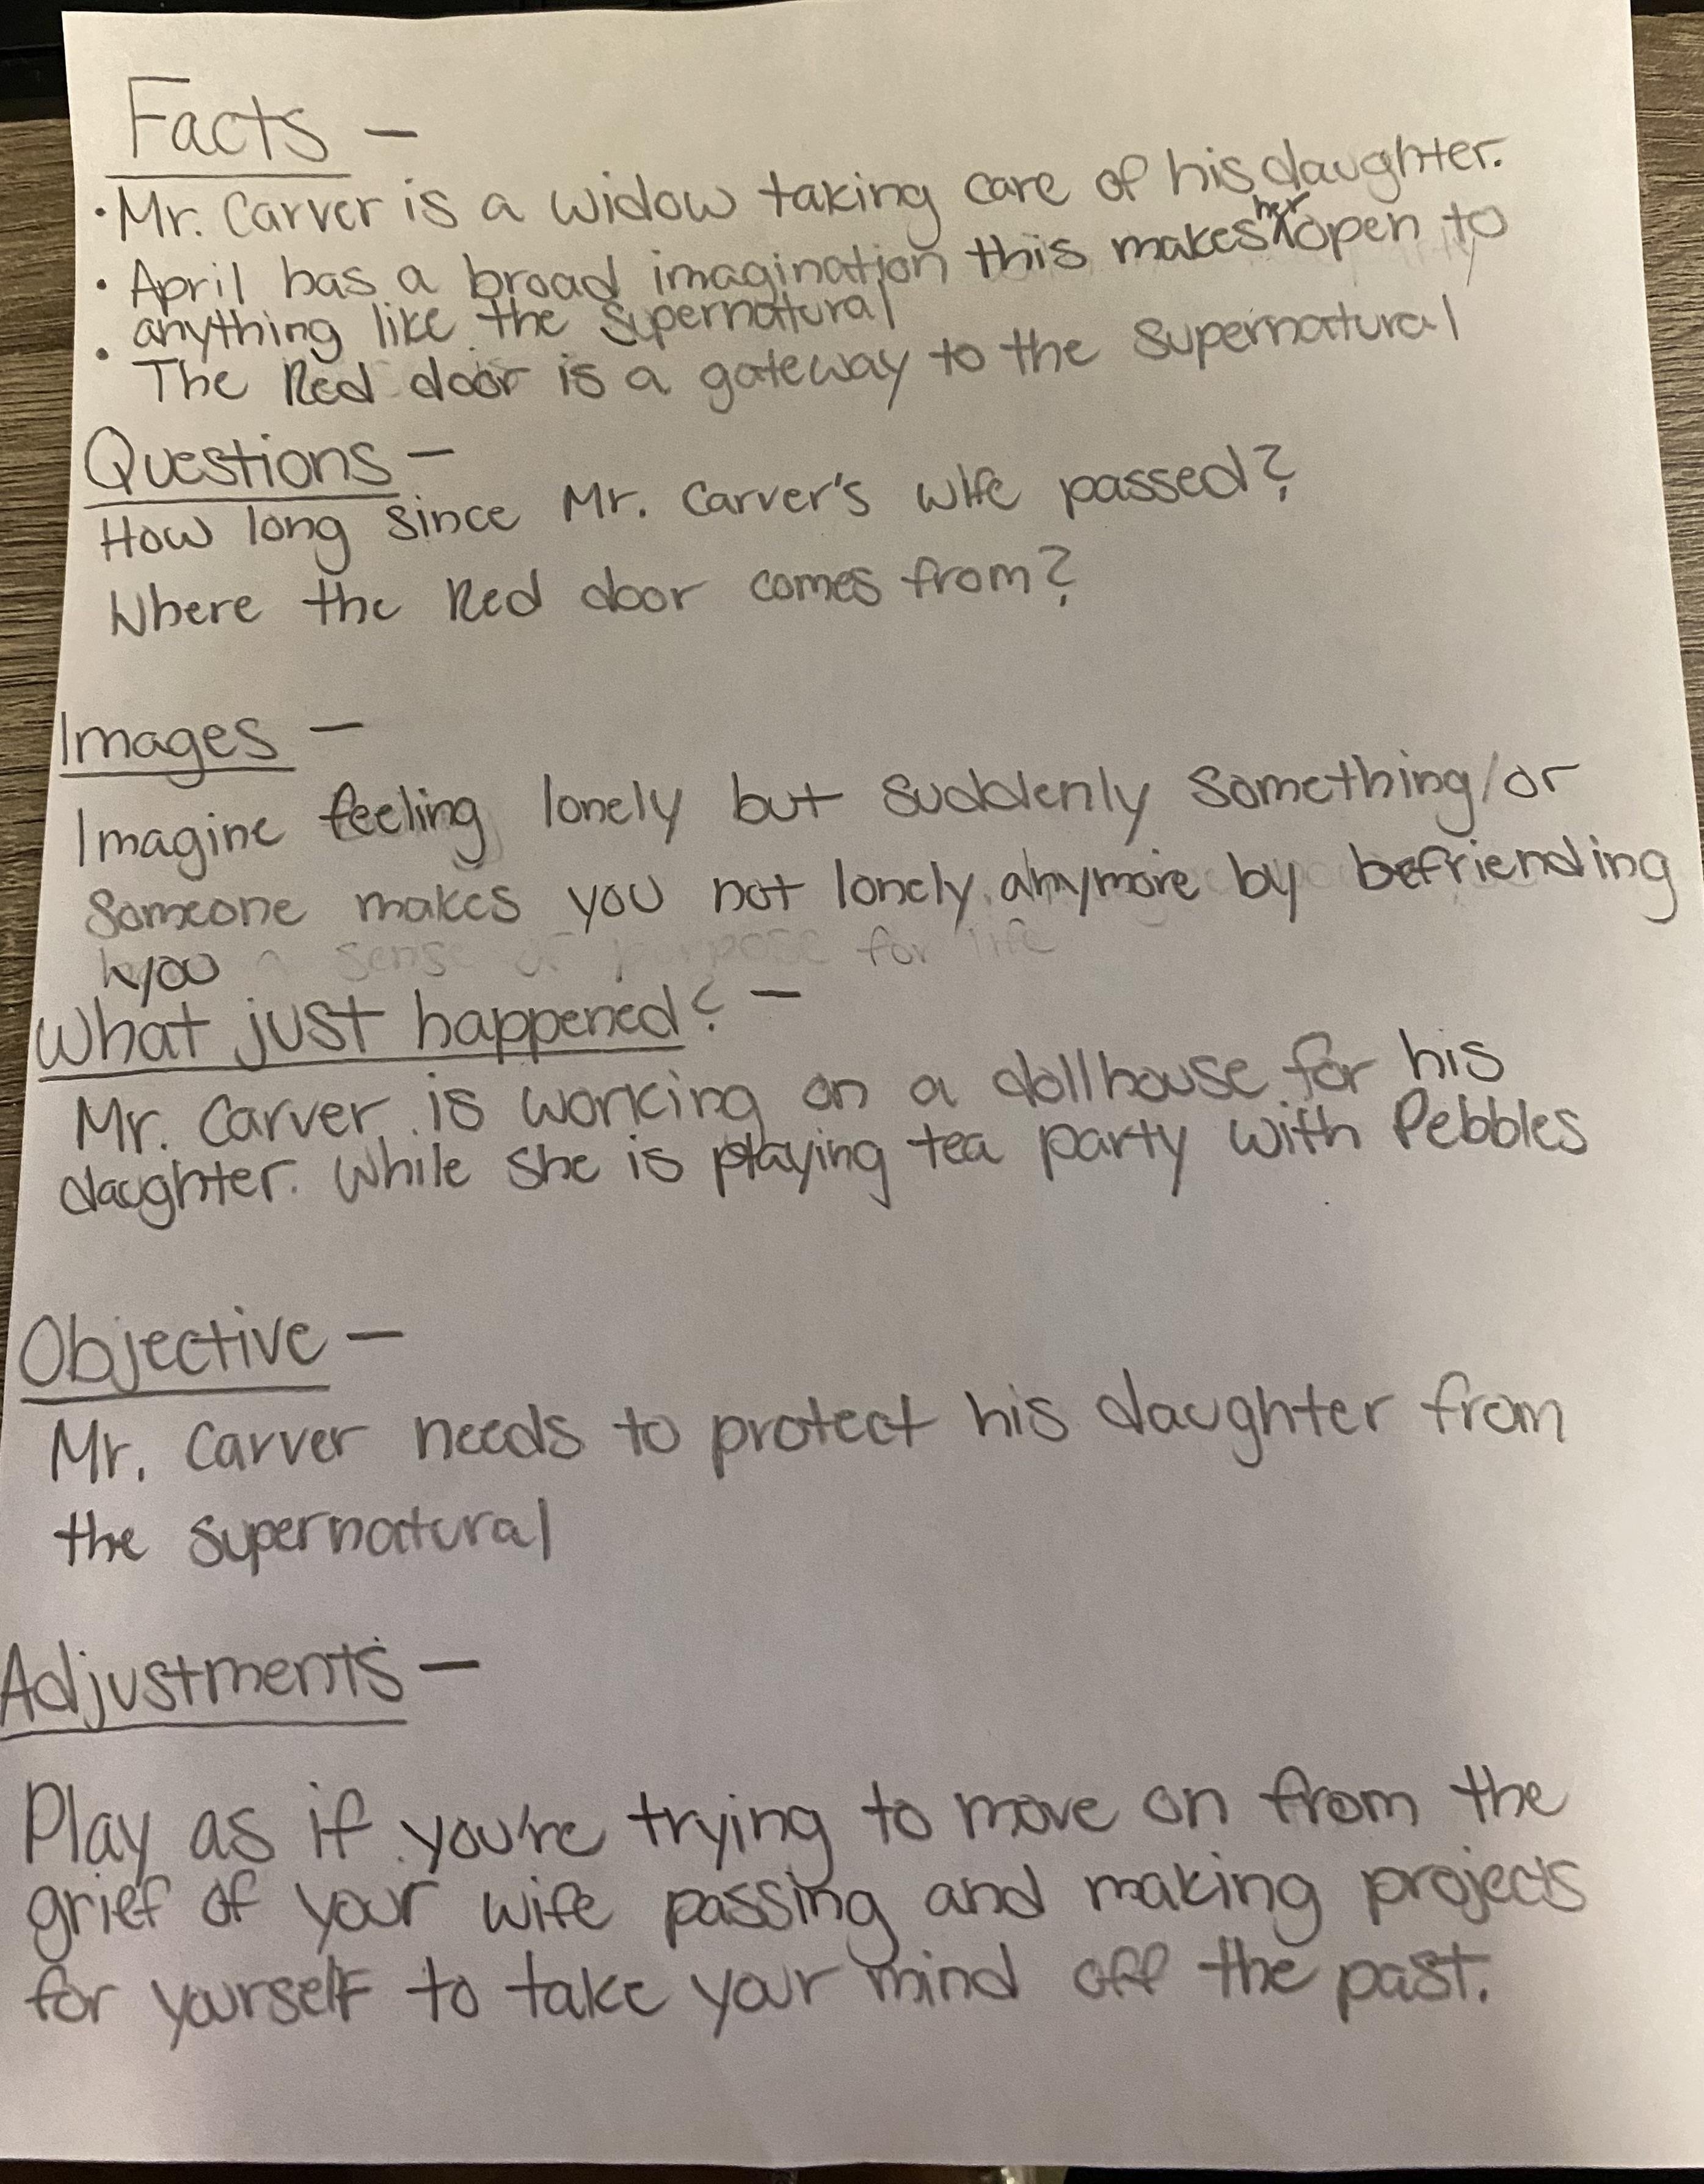 Facts —
• Mr. Carver is a widow taking care of his daughter.
• April has a broad imagination this makes her open to
anything like the supernatural
• The Red door is a gateway to the supernatural
Questions —
How long since Mr. Carver's wife passed?
Where the Red door comes from?
Images —
Imagine feeling lonely but suddenly something/or
someone makes you not lonely anymore by befriending
you
What just happened? —
Mr. Carver is working on a dollhouse for his
daughter. While she is playing tea party with Pebbles
Objective —
Mr. Carver needs to protect his daughter from
the supernatural
Adjustments —
Play as if you're trying to move on from the
grief of your wife passing and making projects
for yourself to take your mind off the past.